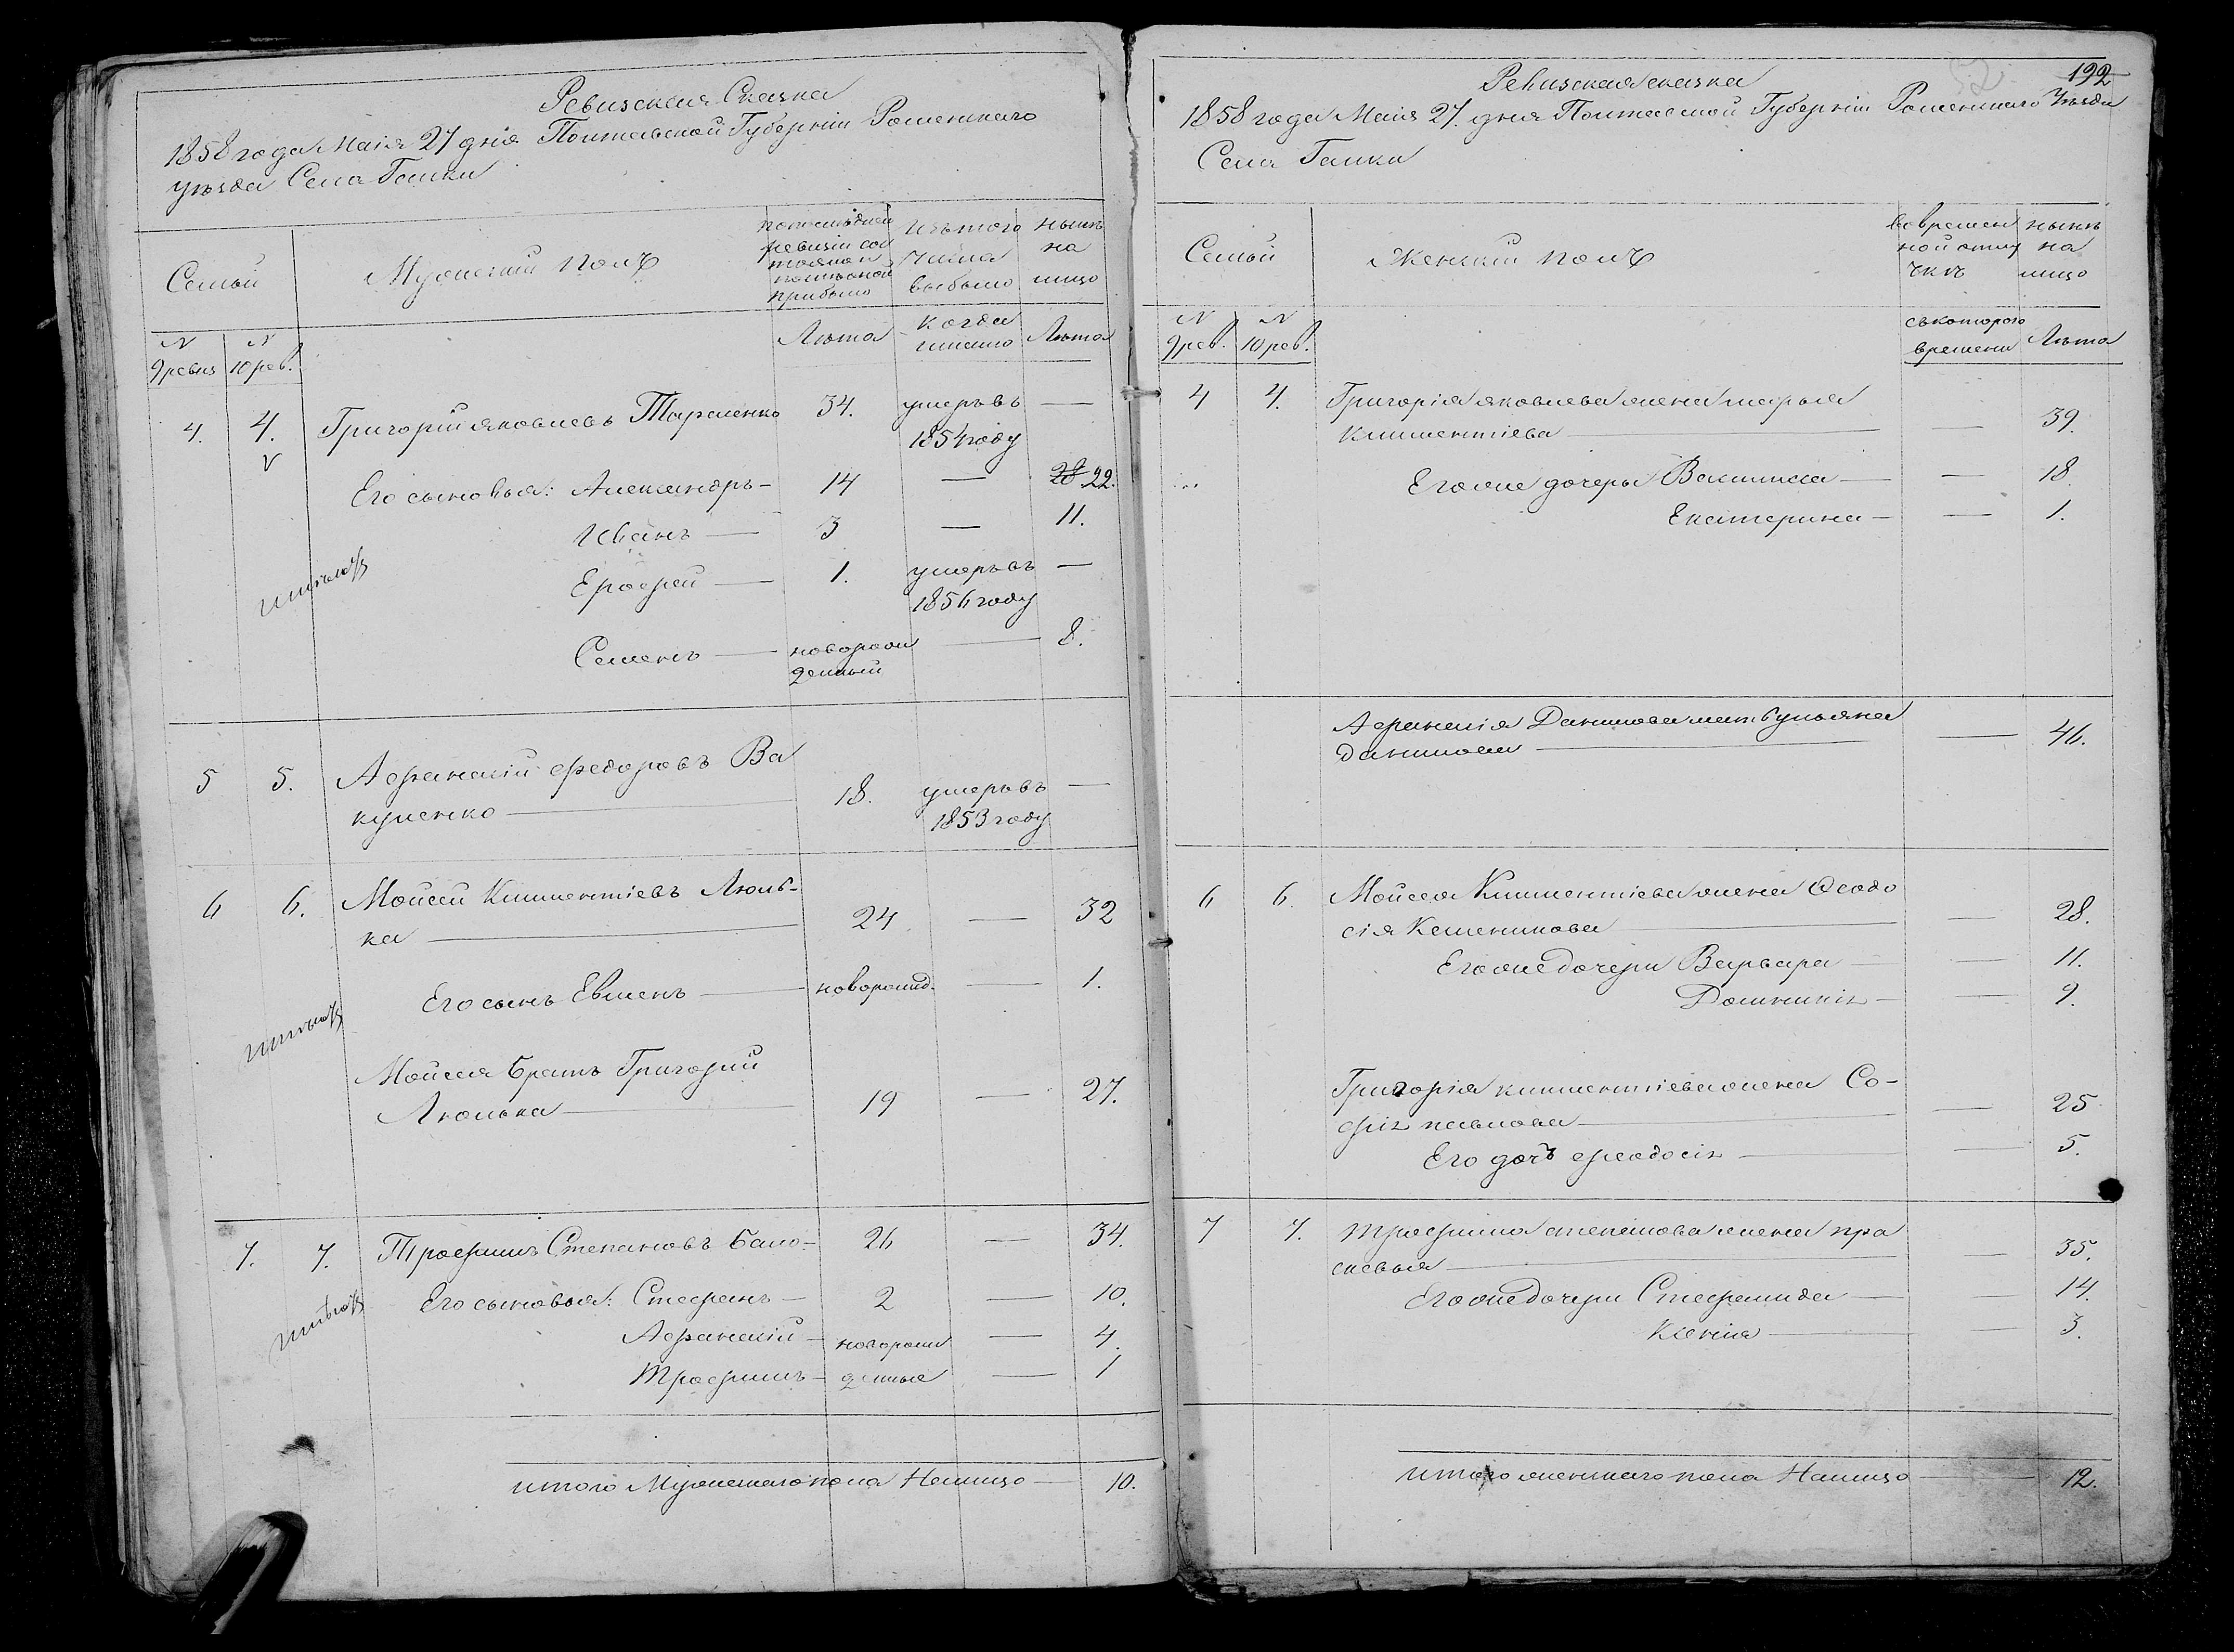 Ревизская Сказка
1858 года Маія 27 дня Полтавской Губерніи Роменскаго
уѣзда Села Галки
Семьи
Мужеский полъ
по последней ревизіи состояло и после оной прибыло
Изъ того числа выбыло
Нынѣ на лицо
N 9 ревиз
N 10 рев.
Лѣта
когда имянно
Лѣта
4. 4. Григорій яковлевъ Тараненко 34. умеръ въ —
1854 году
Его сыновья: Александръ — 14 — 28 22.
Иванъ — 3 — 11.
Ерофей — 1. умеръ въ —
1856 году
Семенъ — новорож — 8.
денный
5 5. Афанасій федоровъ Ва
куленко — 18. умеръ въ —
1853 году
6 6. Мойсей Климентіевъ Люль-
ка — 24 — 32
Его сынъ Евменъ — новорожд. — 1.
Мойсея братъ Григорий
Люлька — 19 — 27.
7. 7. Трофимъ Степановъ Бало- 26 — 34.
Его сыновья: Стефанъ — 2 — 10.
Афанасій — новорож — 4.
Трофимъ — денные — 1
итого Мужескаго пола Налицо — 10.
192
52
Ревизская сказка
1858 года Маія 27. дня Полтавской Губерніи Роменскаго Уѣзда
Села Галки
Семьи
Женский полъ
во времен
ной отлу
чкѣ
нынѣ
на
лицо
N 9 рев.
N 10 рев.
съ котораго
времени
Лѣта
4 4. Григорія яковлева жена марья
Климентіева — — 39.
Его же дочери Василиса — — 18
Екатерина — — 1.
Афанасія Данилова мать ульяна
Данилова — — 46.
6 6. Мойсея Климентіева жена Ѳеодо
сія — 28.
Его же дочери Варвара — — 11.
Домникія — — 9.
Григорія климентіева жена Со-
фія павлова — — 25
Его дочь феодосія — — 5.
7 7. трофима степанова жена пра
сковья — — 35.
Его же дочери Стефанида — — 14.
Ксенія — — 3.
итого женскаго пола Налицо — 12.